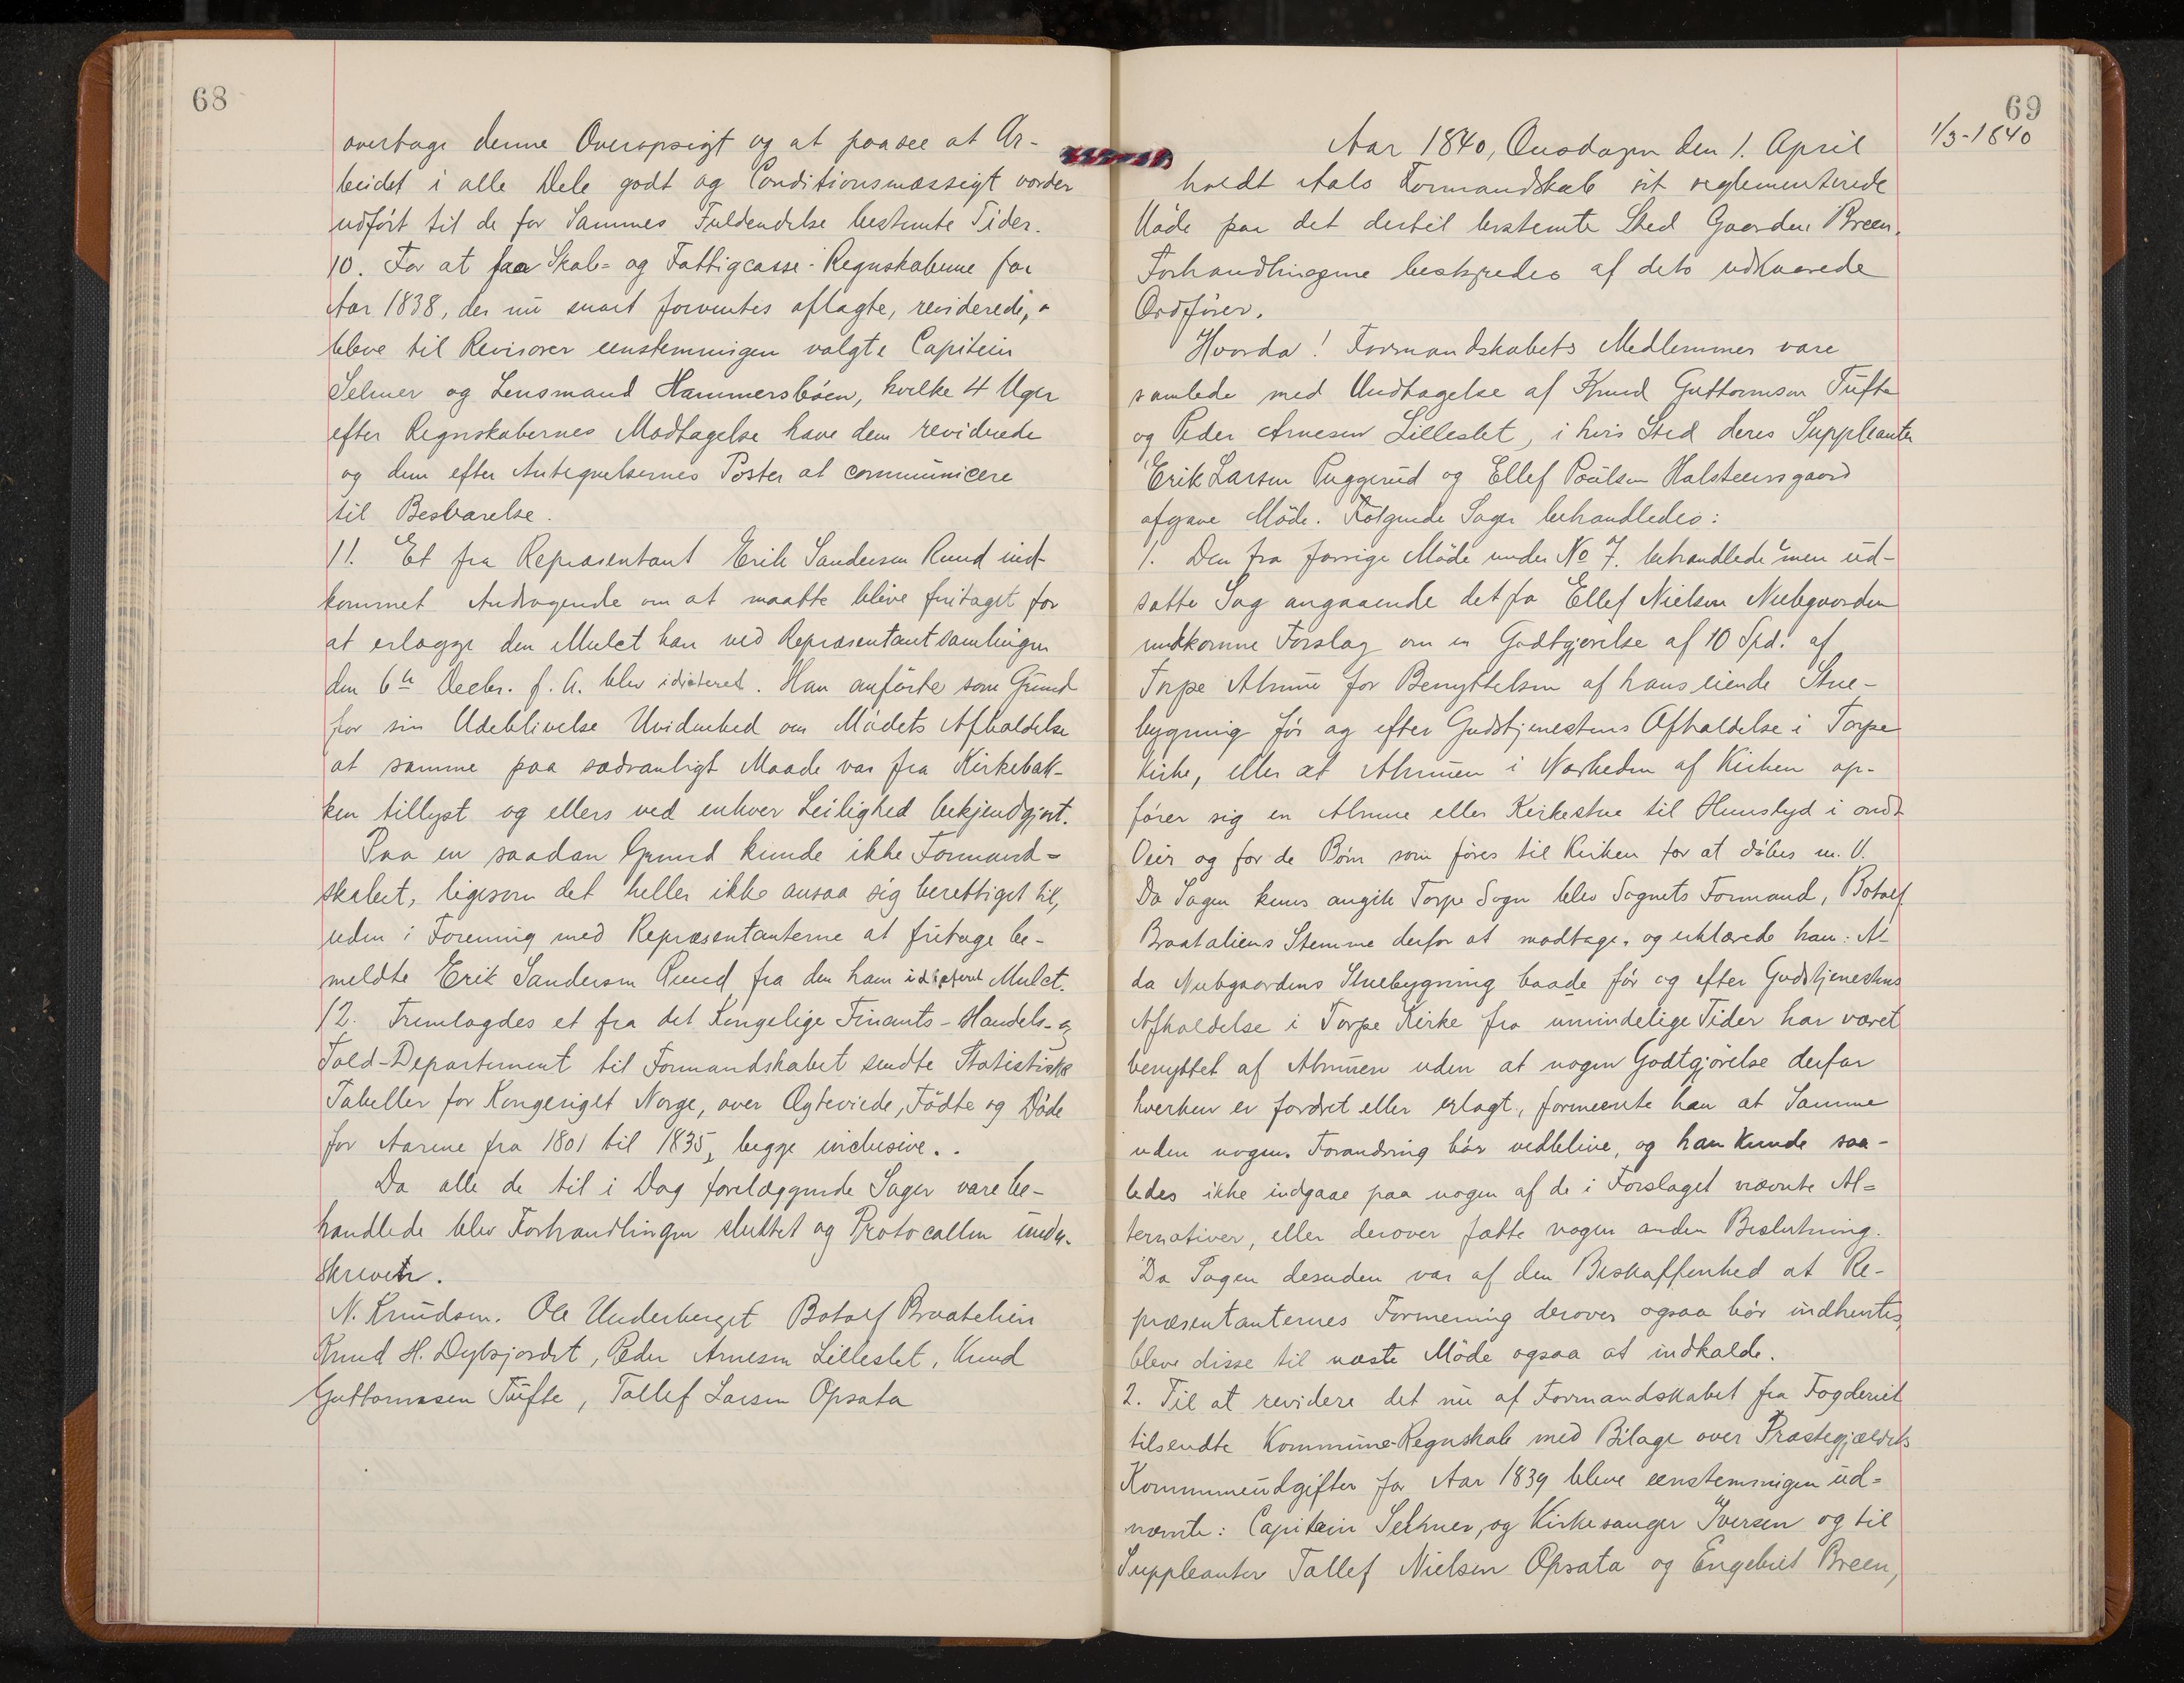 68
overtage denne Overopsigt og at paasee at Ar-
beidet i alle Dele godt og Conditionsmæssigt vorder
udført til de for Sammes Fuldendelse bestemte Tider.
10. For at faa Skole- og Fattigcasse-Regnskaberne for
Aar 1838, der nu snart forventes aflagte, reviderede,
bleve til Revisorer eenstemmigen valgte Capitein
Selmer og Lensmand Hammersbøen, hvilke 4 Uger
efter Regnskabernes Modtagelse have dem reviderede
og dem efter Antegnelsernes Poster at communicere
til Besvarelse.
11. Et fra Repræsentant Erik Sandersen Ruud ind-
kommet Andragende om at maatte blive fritaget for
at erlægge den Mulct han ved Repræsentantsamlingen
den 6te Decbr. f. A. blev idicteret. Han anførte som Grund
for sin Udeblivelse Uvidenhed om Mødets Afholdelse
at samme paa sædvanligt Maade var fra Kirkebak-
ken tillyst og ellers ved enhver Leilighed bekjendtgjort.
Paa en saadan Grund kunde ikke Formand-
skabet, ligesom det heller ikke ansaa sig berettiget til,
uden i Forening med Repræsentanterne at fritage be-
meldte Erik Sandersen Ruud fra den ham idicterte Mulct.
12. Fremlagdes et fra det Kongelige Finants-Handels- og
Told-Departement til Formandskabet sendte Statistiske
Tabeller for Kongeriget Norge, over Ægteviede, Fødte og Døde
for Aarene fra 1801 til 1835, begge inclusive.
Da alle de til i Dag forelæggende Sager vare be-
handlede blev Forhandlingen sluttet og Protocollen under-
skreven.
N. Knudsen. Ole Underberget Botolf Braatelien
Knud H. Dybsjordet, Peder Arnesen Lilleslet, Knud
Guttormsen Tufte, Tollef Larsen Opsata
69
1/3-1840
Aar 1840, Onsdagen den 1. April
holdt Aals Formandskab sit reglementerede
Møde paa det dertil bestemte Sted Gaarden Breen.
Forhandlingerne bestyredes af dets udkaarede
Ordfører.
Hvorda! Formandskabets Medlemmer vare
samlede med Undtagelse af Knud Guttormsen Tufte
og Peder Arnesen Lilleslet, i hvis Sted deres Suppleanter
Erik Larsen Puggerud og Ellef Poulsen Halsteensgaard
afgave Møde. Følgende Sager behandledes:
1. Den fra forrige Møde under No 7. behandlede men ud-
satte Sag angaaende det fra Ellef Nielsen Nubgaarden
indkomne Forslag om en Godtgjørelse af 10 Spd. af
Torpe Almue for Benyttelsen af hans eiende Stue-
bygning før og efter Gudstjenestens Afholdelse i Torpe
Kirke, eller at Almuen i Nærheden af Kirken op-
fører sig en Almue eller Kirkestue til Huuslyd i ondt
Veir og for de Børn som føres til Kirken for at døbes m. V.
Da Sagen kuns angik Torpe Sogn blev Sognets Formand, Botolf
Braataliens Stemme derfor at modtage, og erklærede han: At
da Nubgaardens Stuebygning baade før og efter Gudstjenestens
Afholdelse i Torpe Kirke fra umindelige Tider har været
benyttet af Almuen uden at nogen Godtgjørelse derfor
hverken er fordret eller erlagt, formeente han at Samme
uden nogen Forandring bør vedblive, og han kunde saa-
ledes ikke indgaae paa nogen af de i Forslaget nævnte Al-
ternativer, eller derover fatte nogen anden Beslutning.
Da Sagen desuden var af den Beskaffenhed at Re-
præsentanternes Formening derover ogsaa bør indhentes,
bleve disse til næste Møde ogsaa at indkalde.
2. Til at revidere det nu af Formandskabet fra Fogderiet
tilsendte Kommune-Regnskab med Bilage over Præstegjældets
Kommuneudgifter for Aar 1839 bleve eenstemmigen ud-
nævnte: Capitein Selmer, og Kirkesanger Iversen og til
Suppleanter Tollef Nielsen Opsata og Engebret Breen,